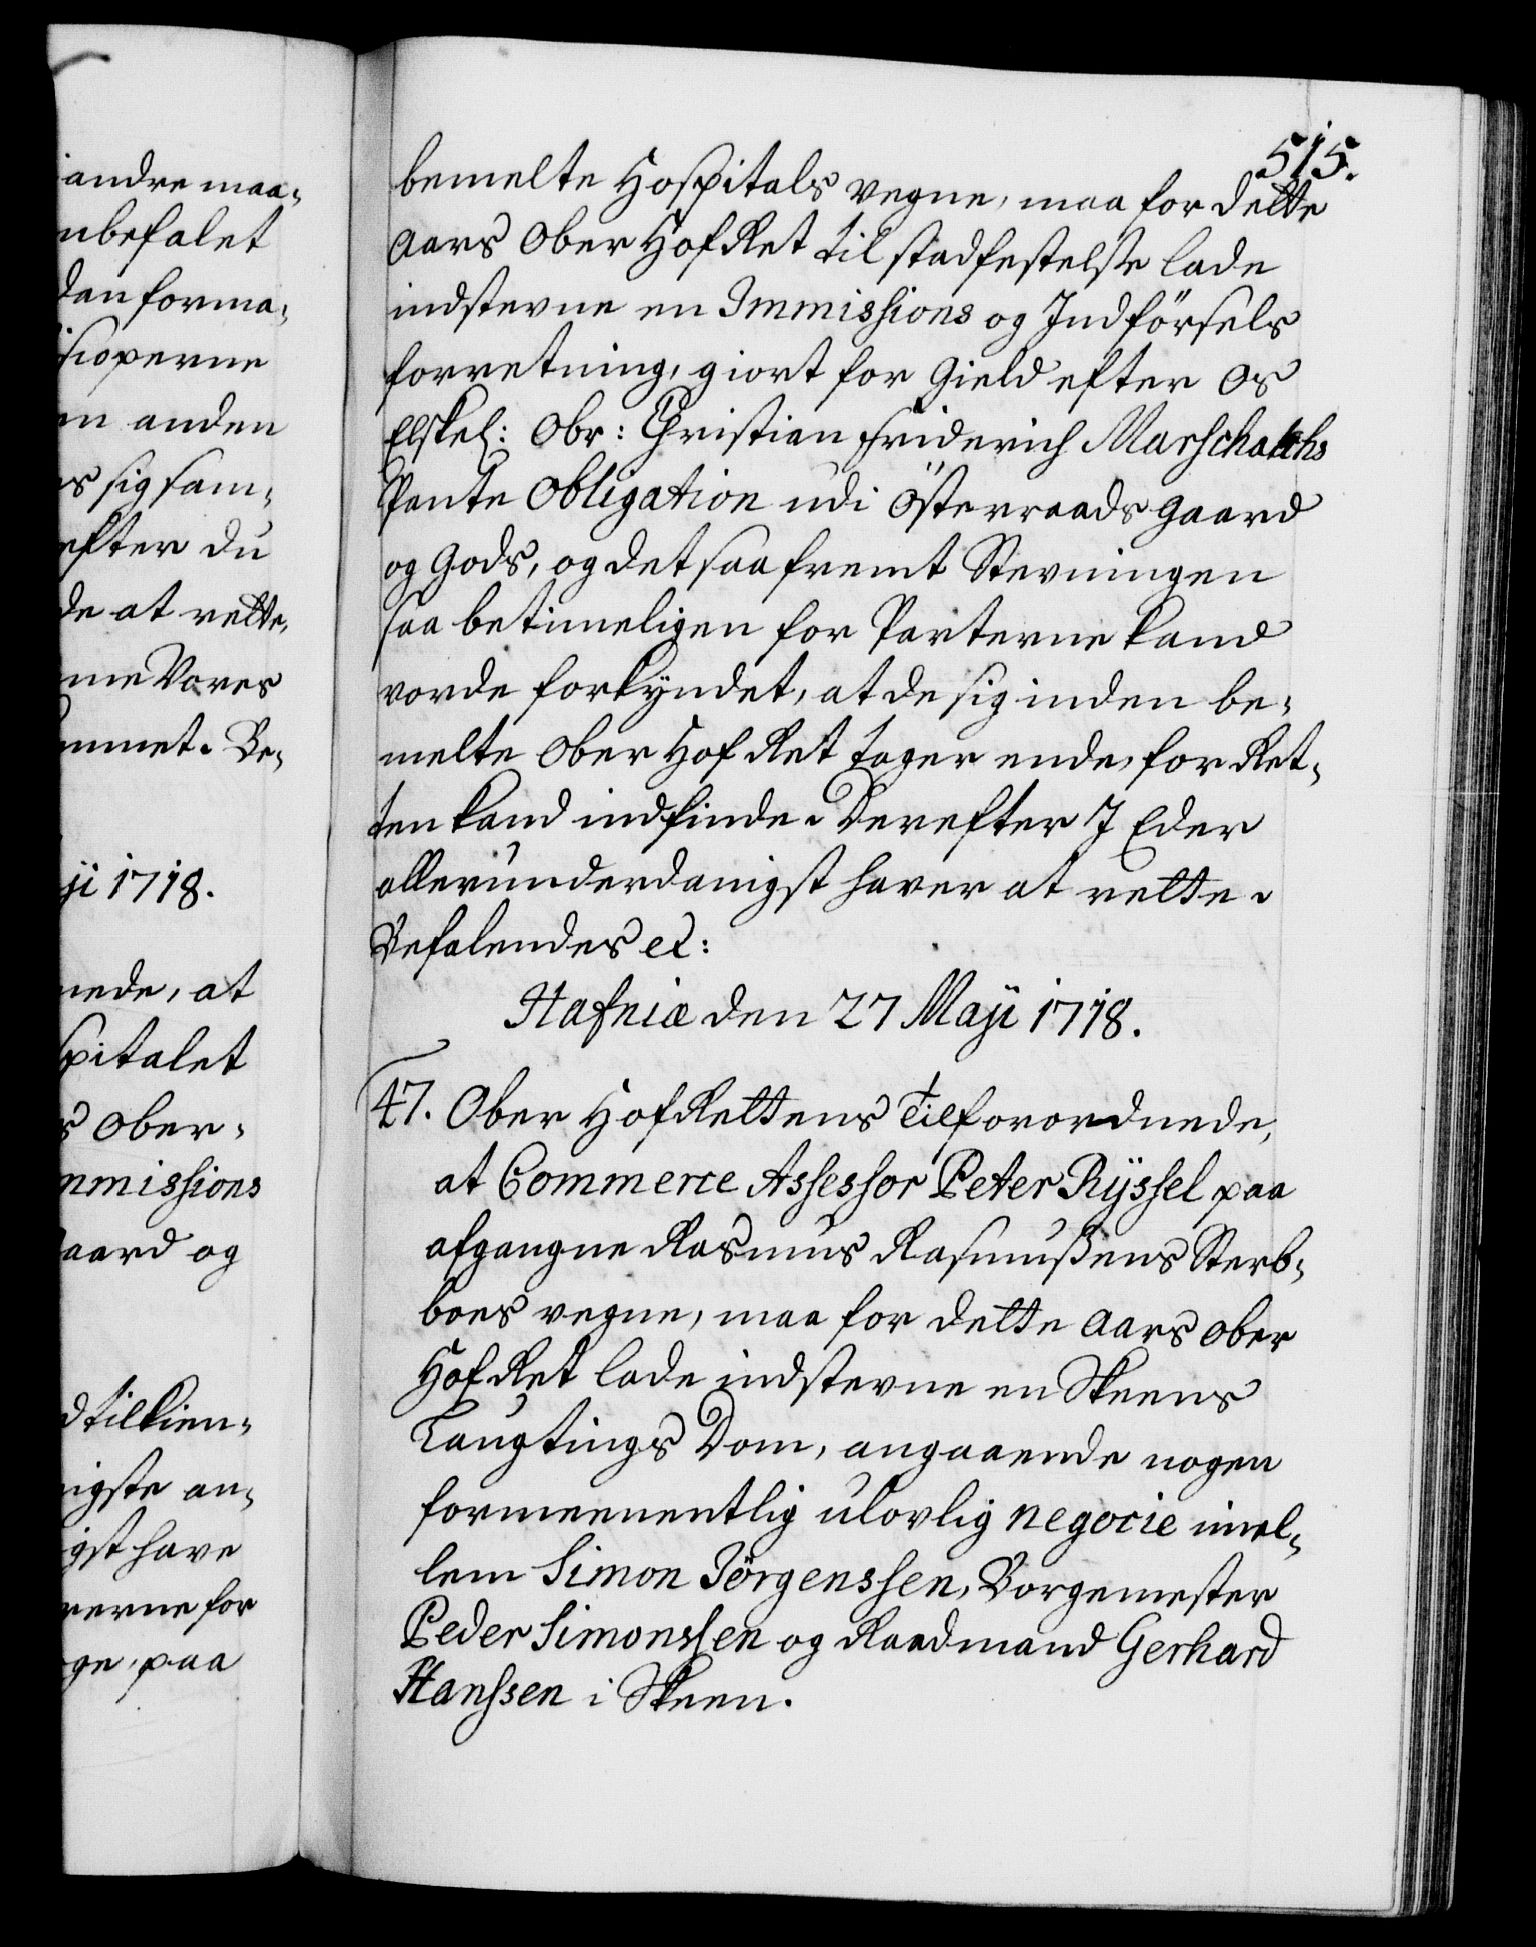 andre maa¬
nbefalet
dan forma¬
sioperne
en anden
es sig sam¬
efter du
de at rette,
ne Vores
mmet. Be¬
ji 1718.
nede, at
spitalet
s Ober¬
mmissions
aard og
d tilkien¬
nigste an¬
igst have
rerne for
ge, paa
515.
bemelte Hospitals vegne, maa for dette
Aars Ober HofRet til stadfestelse lade
indstevne en Immissions og Indförsels
forretning, giort for Gield efter Os
Elskel: Obr: Christian Friderich Marschalchs
Pante Obligation udi Österraads Gaard
og Gods, og det saafremt Stevningen
saa betimeligen for Parterne kand
vorde forkyndet, at de sig inden be¬
melte Ober HofRet tager ende, for Ret¬
ten kand indfinde. Derefter I Eder
allerunderdanigst haver at rette.
Befalendes etc:
Hafniæ den 27 Maji 1718.
47. Ober HofRettens Tilforordnede,
at Commerce Assessor Peter Ryssel paa
afgangne Rasmus Rasmußens Sterb¬
boes vegne, maa for dette Aars Ober
HofRet lade indstevne en Skeens
Laugtings Dom, angaaende nogen
formeenentlig ulovlig negocie imel¬
lem Simon Jörgenssen, Borgemester
Peder Simonssen og Raadmand Gerhard
Hanssen i Skeen.